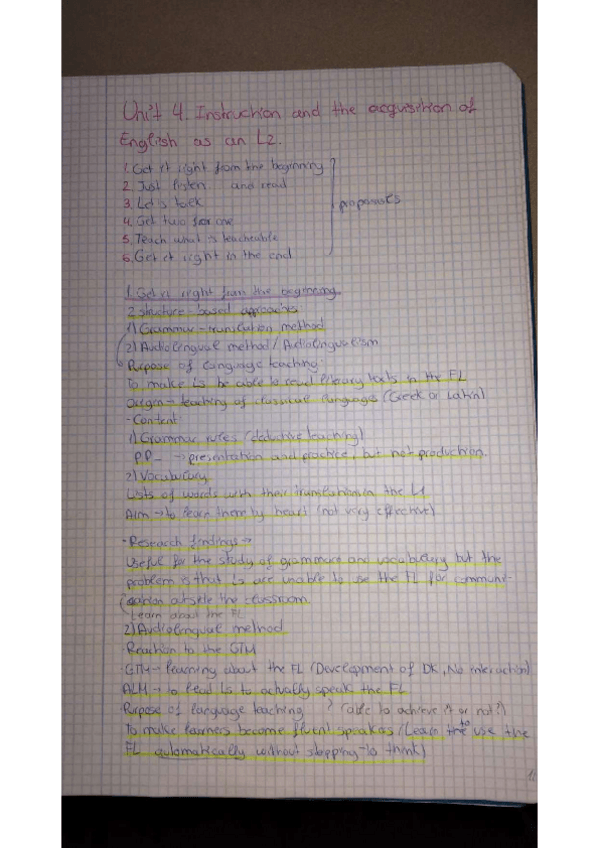 Unit 4. Instruction and the acquisition of
English as an L2.
1. Get it right from the beginning
2. Just listen and read
3. Let's talk
4. Get two for one
5. Teach what is teachable
6. Get it right in the end
proposals
1. Get it right from the beginning
2 structure-based approaches
1) Grammar-translation method
2) Audiolingual method / Audiolingualism
Purpose of language teaching:
To make Ls be able to read literary texts in the FL
Origin → teaching of classical languages (Greek or Latin)
- Content:
1) Grammar rules (deductive teaching)
PP_ → presentation and practice, but not production.
2) Vocabulary
Lists of words with their translation in the L1
Aim → to learn them by heart (not very effective)
- Research findings →
Useful for the study of grammar and vocabulary but the
problem is that Ls are unable to use the FL for communi-
cation outside the classroom
Learn about the FL
2) Audiolingual method
- Reaction to the GTM
- GTM → learning about the FL (Development of DK, No interaction)
ALM → to lead Ls to actually speak the FL
Purpose of language teaching ? (able to achieve it or not?)
To make learners become fluent speakers (Learn the to use the
FL automatically without stopping to think)